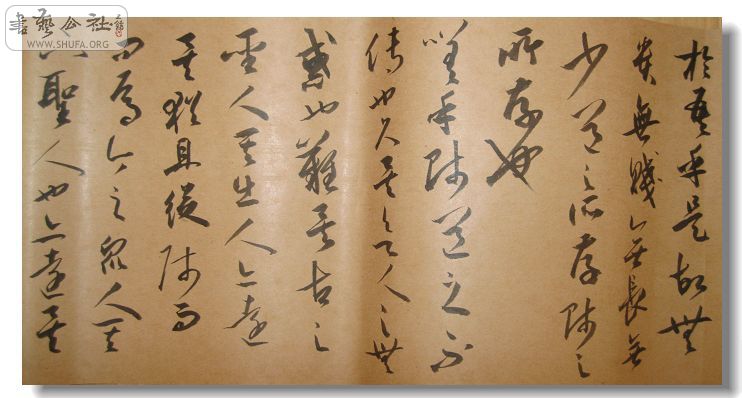 書藝公社
WWW.SHUFA.ORG
於吾乎是故無
貴無賤無長無
少道之所存師之
所存也
嗟乎師道之不
傳也久矣欲人之無
惑也難矣古之
聖人其出人亦遠
矣猶且從師而
問焉今之眾人其
下聖人也亦遠矣